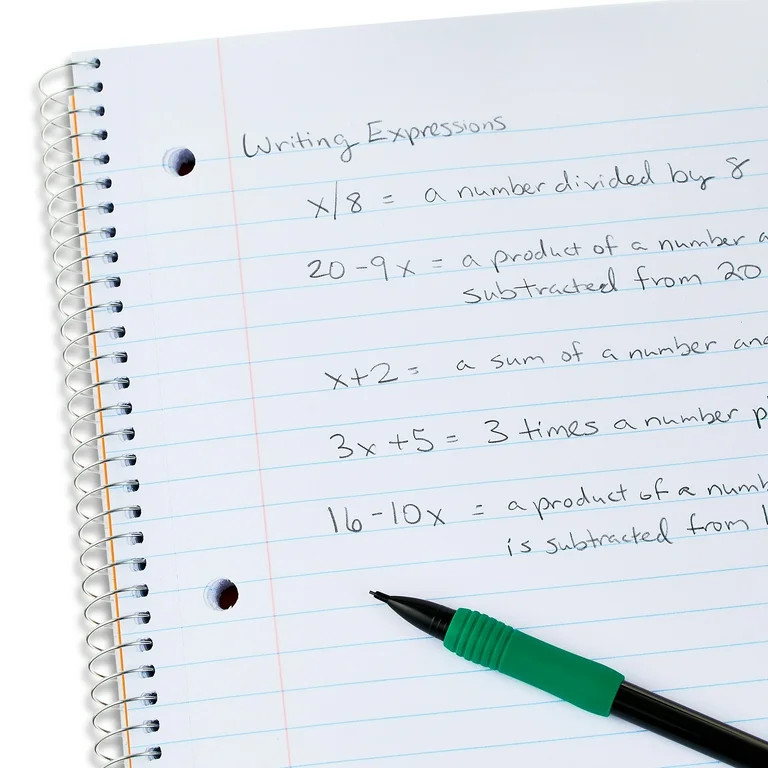 Writing Expressions
x/8 = a number divided by 8
20-9x = a product of a number
subtracted from 20
x+2= a sum of a number
3x+5= 3 times a number
16-10x = a product of a
is subtracted from